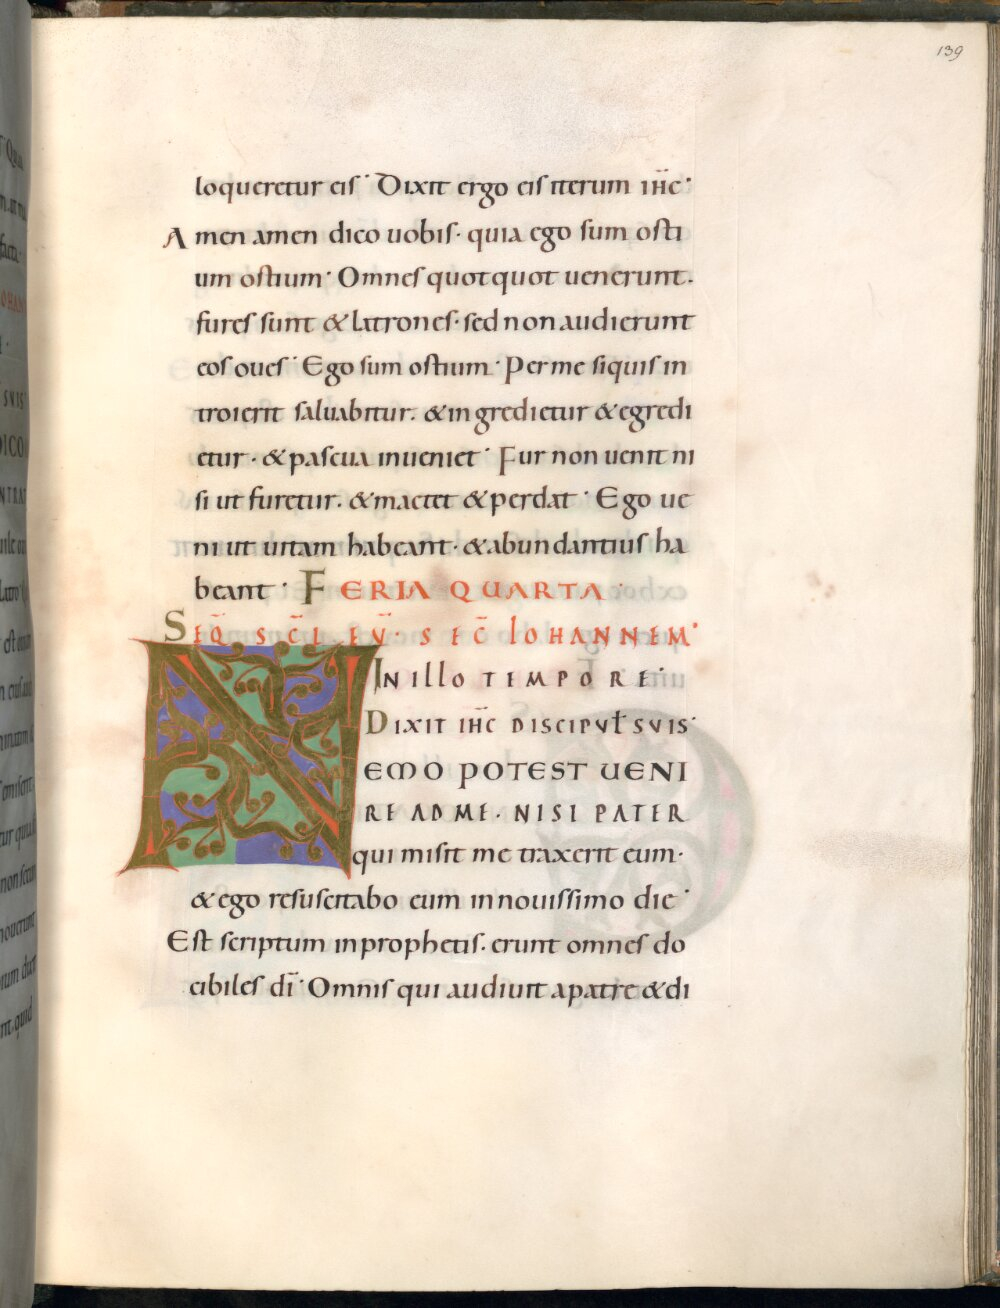 139
loqueretur eis Dixit ergo eis iterum ihc̄
Amen amen dico uobis· quia ego sum osti
um ostium· Omnes quotquot uenerunt·
fures sunt & latrones· sed non audierunt
eos oues· Ego sum ostium· Per me siquis in
troierit saluabitur· & ingredietur & egredi
etur· & pascua inueniet· Fur non uenit ni
si ut furetur· & mactet & perdat· Ego ue
ni ut uitam habeant· & abundantius ha
beant· FERIA QUARTA·
SEQ̄ SC̄I EV̄· SEC̄ IOHANNEM·
IN ILLO TEMPORE·
DIXIT IHC̄ DISCIPUŁ SVIS·
NEMO POTEST UENI
RE AD ME· NISI PATER
qui misit me traxerit eum·
& ego resuscitabo eum in nouissimo die·
Est scriptum in prophetis· erunt omnes do
cibiles dī· Omnis qui audiuit a patre & di